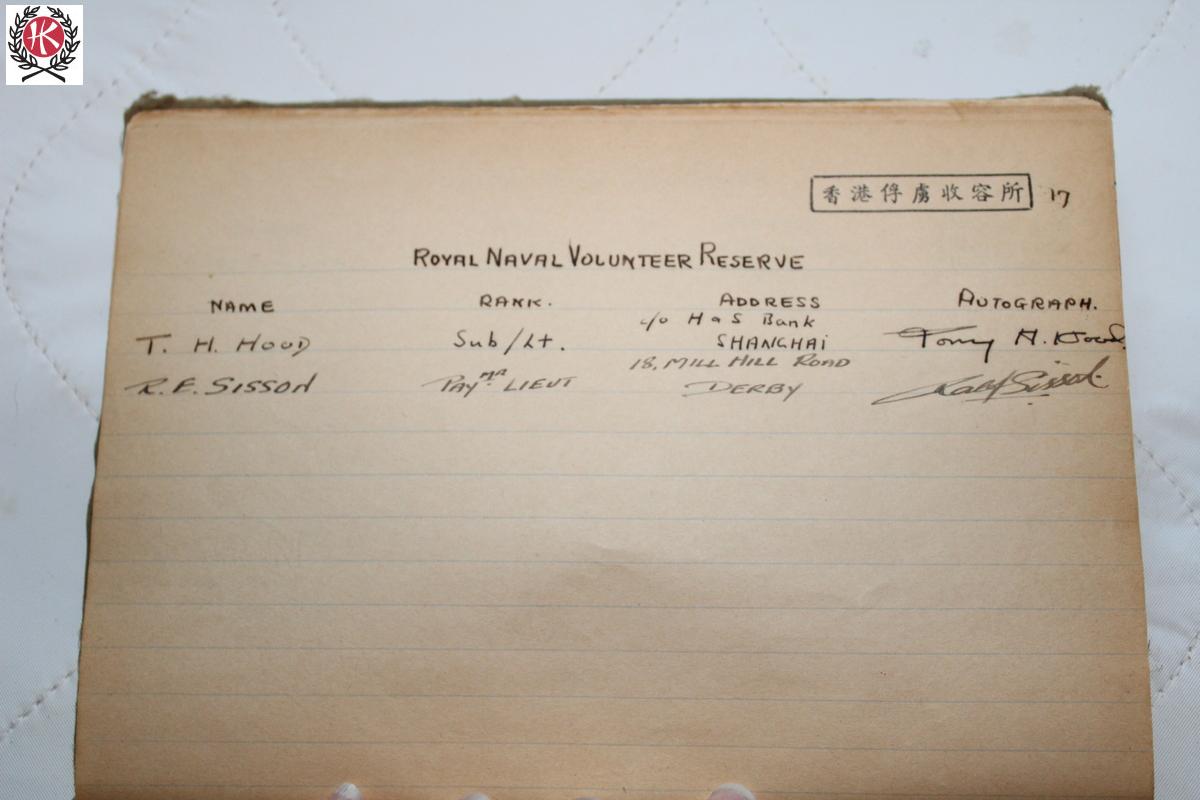 HK
香港俘虜收容所 17
ROYAL NAVAL VOLUNTEER RESERVE
NAME RANK. ADDRESS AUTOGRAPH.
c/o H & S Bank
T. H. HOOD Sub/Lt. SHANGHAI Tony H. Hood.
18, MILL HILL ROAD
R. E. SISSON PAYMR LIEUT DERBY Sisson